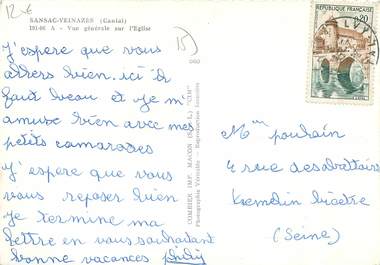 12-6
SANSAC-VEINAZES (Cantal)
191-06 A - Vue générale sur l'Eglise
15
J'espere que vous
allers bien. ici il
faut beau et je m'
amuse bien avec mes
petits camarades
J'espere que vous
vous reposer bien
je termine ma
lettre en vous souhaitant
bonne vacances
COMBIER IMP. MACON (S.-&-L.) "CIM"
Photographie Véritable - Reproduction Interdite
REPUBLIQUE FRANÇAISE
0,20
Mme poulain
4 rue des
Kremelin bicetre
(Seine)